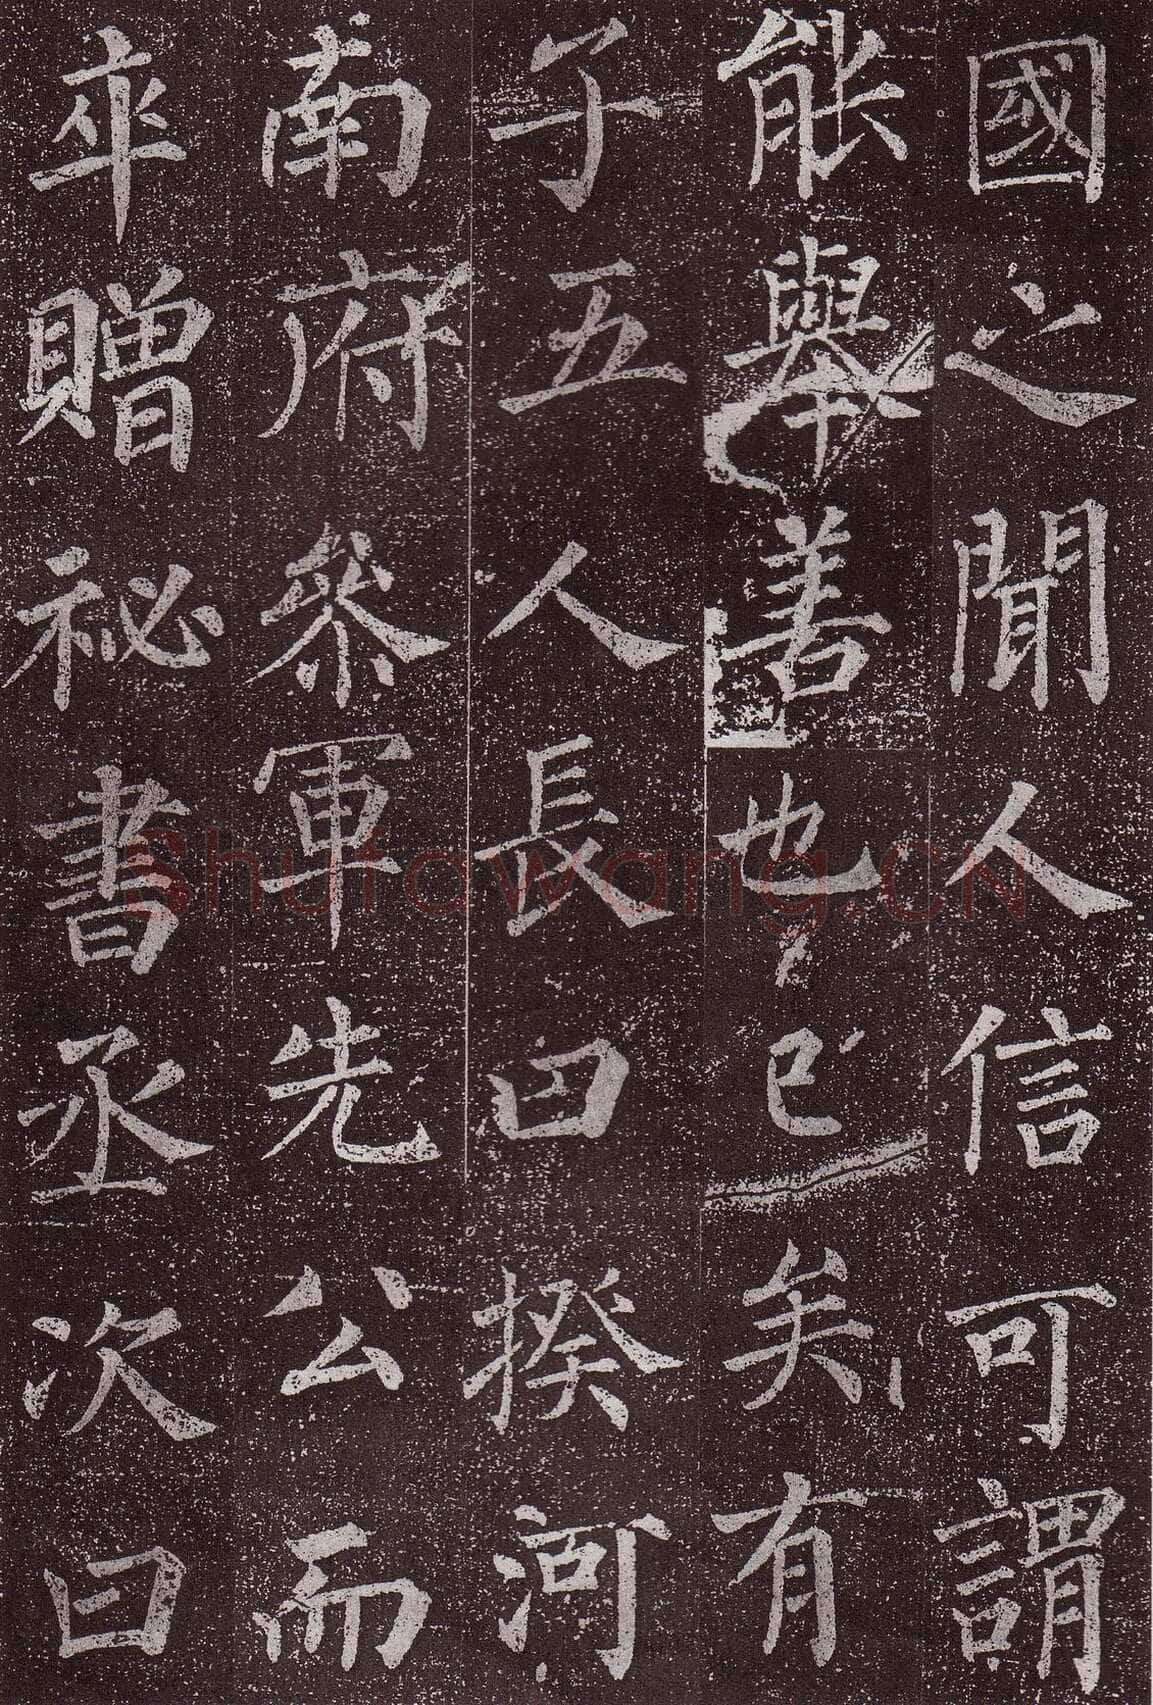 國之聞人信可謂
能舉善也已矣有
子五人長曰揆河
南府參軍先公而
卒贈祕書丞次曰
Shufawang.CN